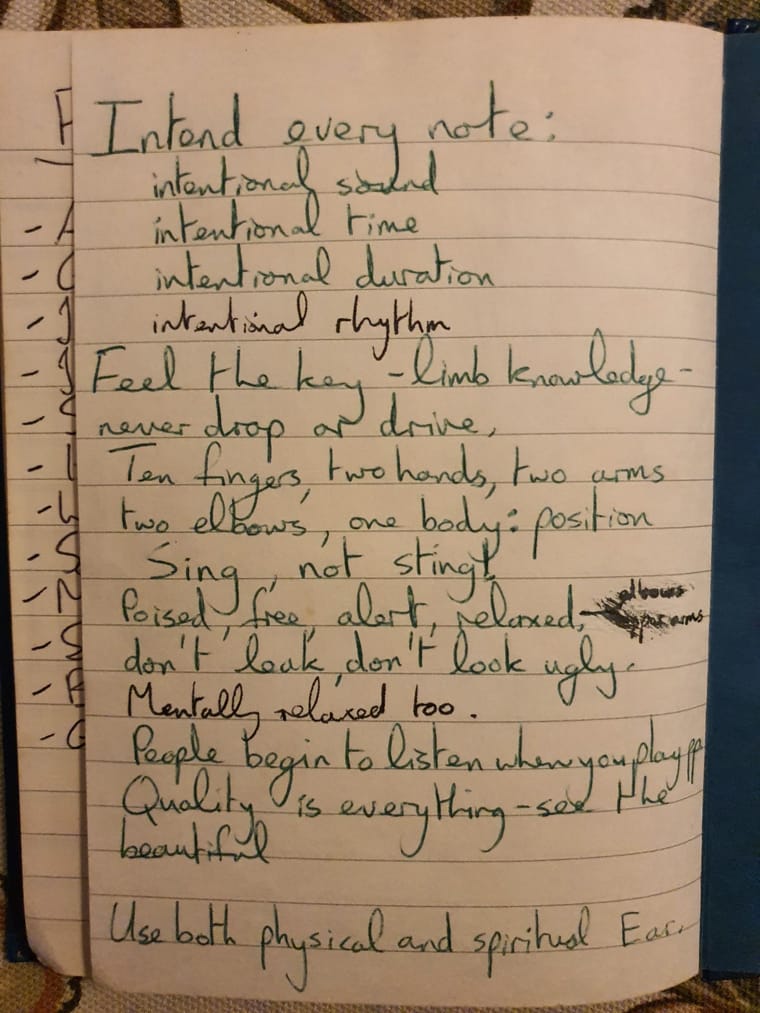 Intend every note:
intentional sound
intentional time
intentional duration
intentional rhythm
Feel the key - limb knowledge -
never drop or drive,
Ten fingers, two hands, two arms
two elbows, one body: position
Sing, not sting!
Poised, free, alert, relaxed, elbows
arms
don't leak, don't look ugly.
Mentally relaxed too.
People begin to listen when you play pp
Quality is everything - see the
beautiful
Use both physical and spiritual Ear.